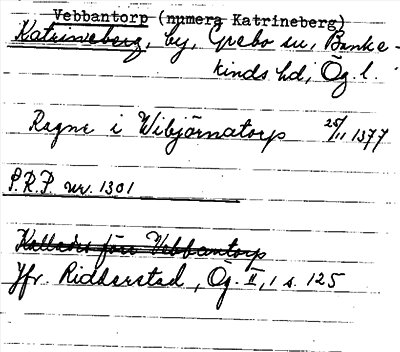 Vebbantorp (numera Katrineberg)
Katrineberg, by, Grebo sn, Banke-
kinds hd, Ög. l.
Ragne i Wibjärnatorp 25/11 1377
P.R.P. nr. 1301
Kallades förr Vebbantorp
Jfr. Ridderstad, Ög. II, 1 s. 125